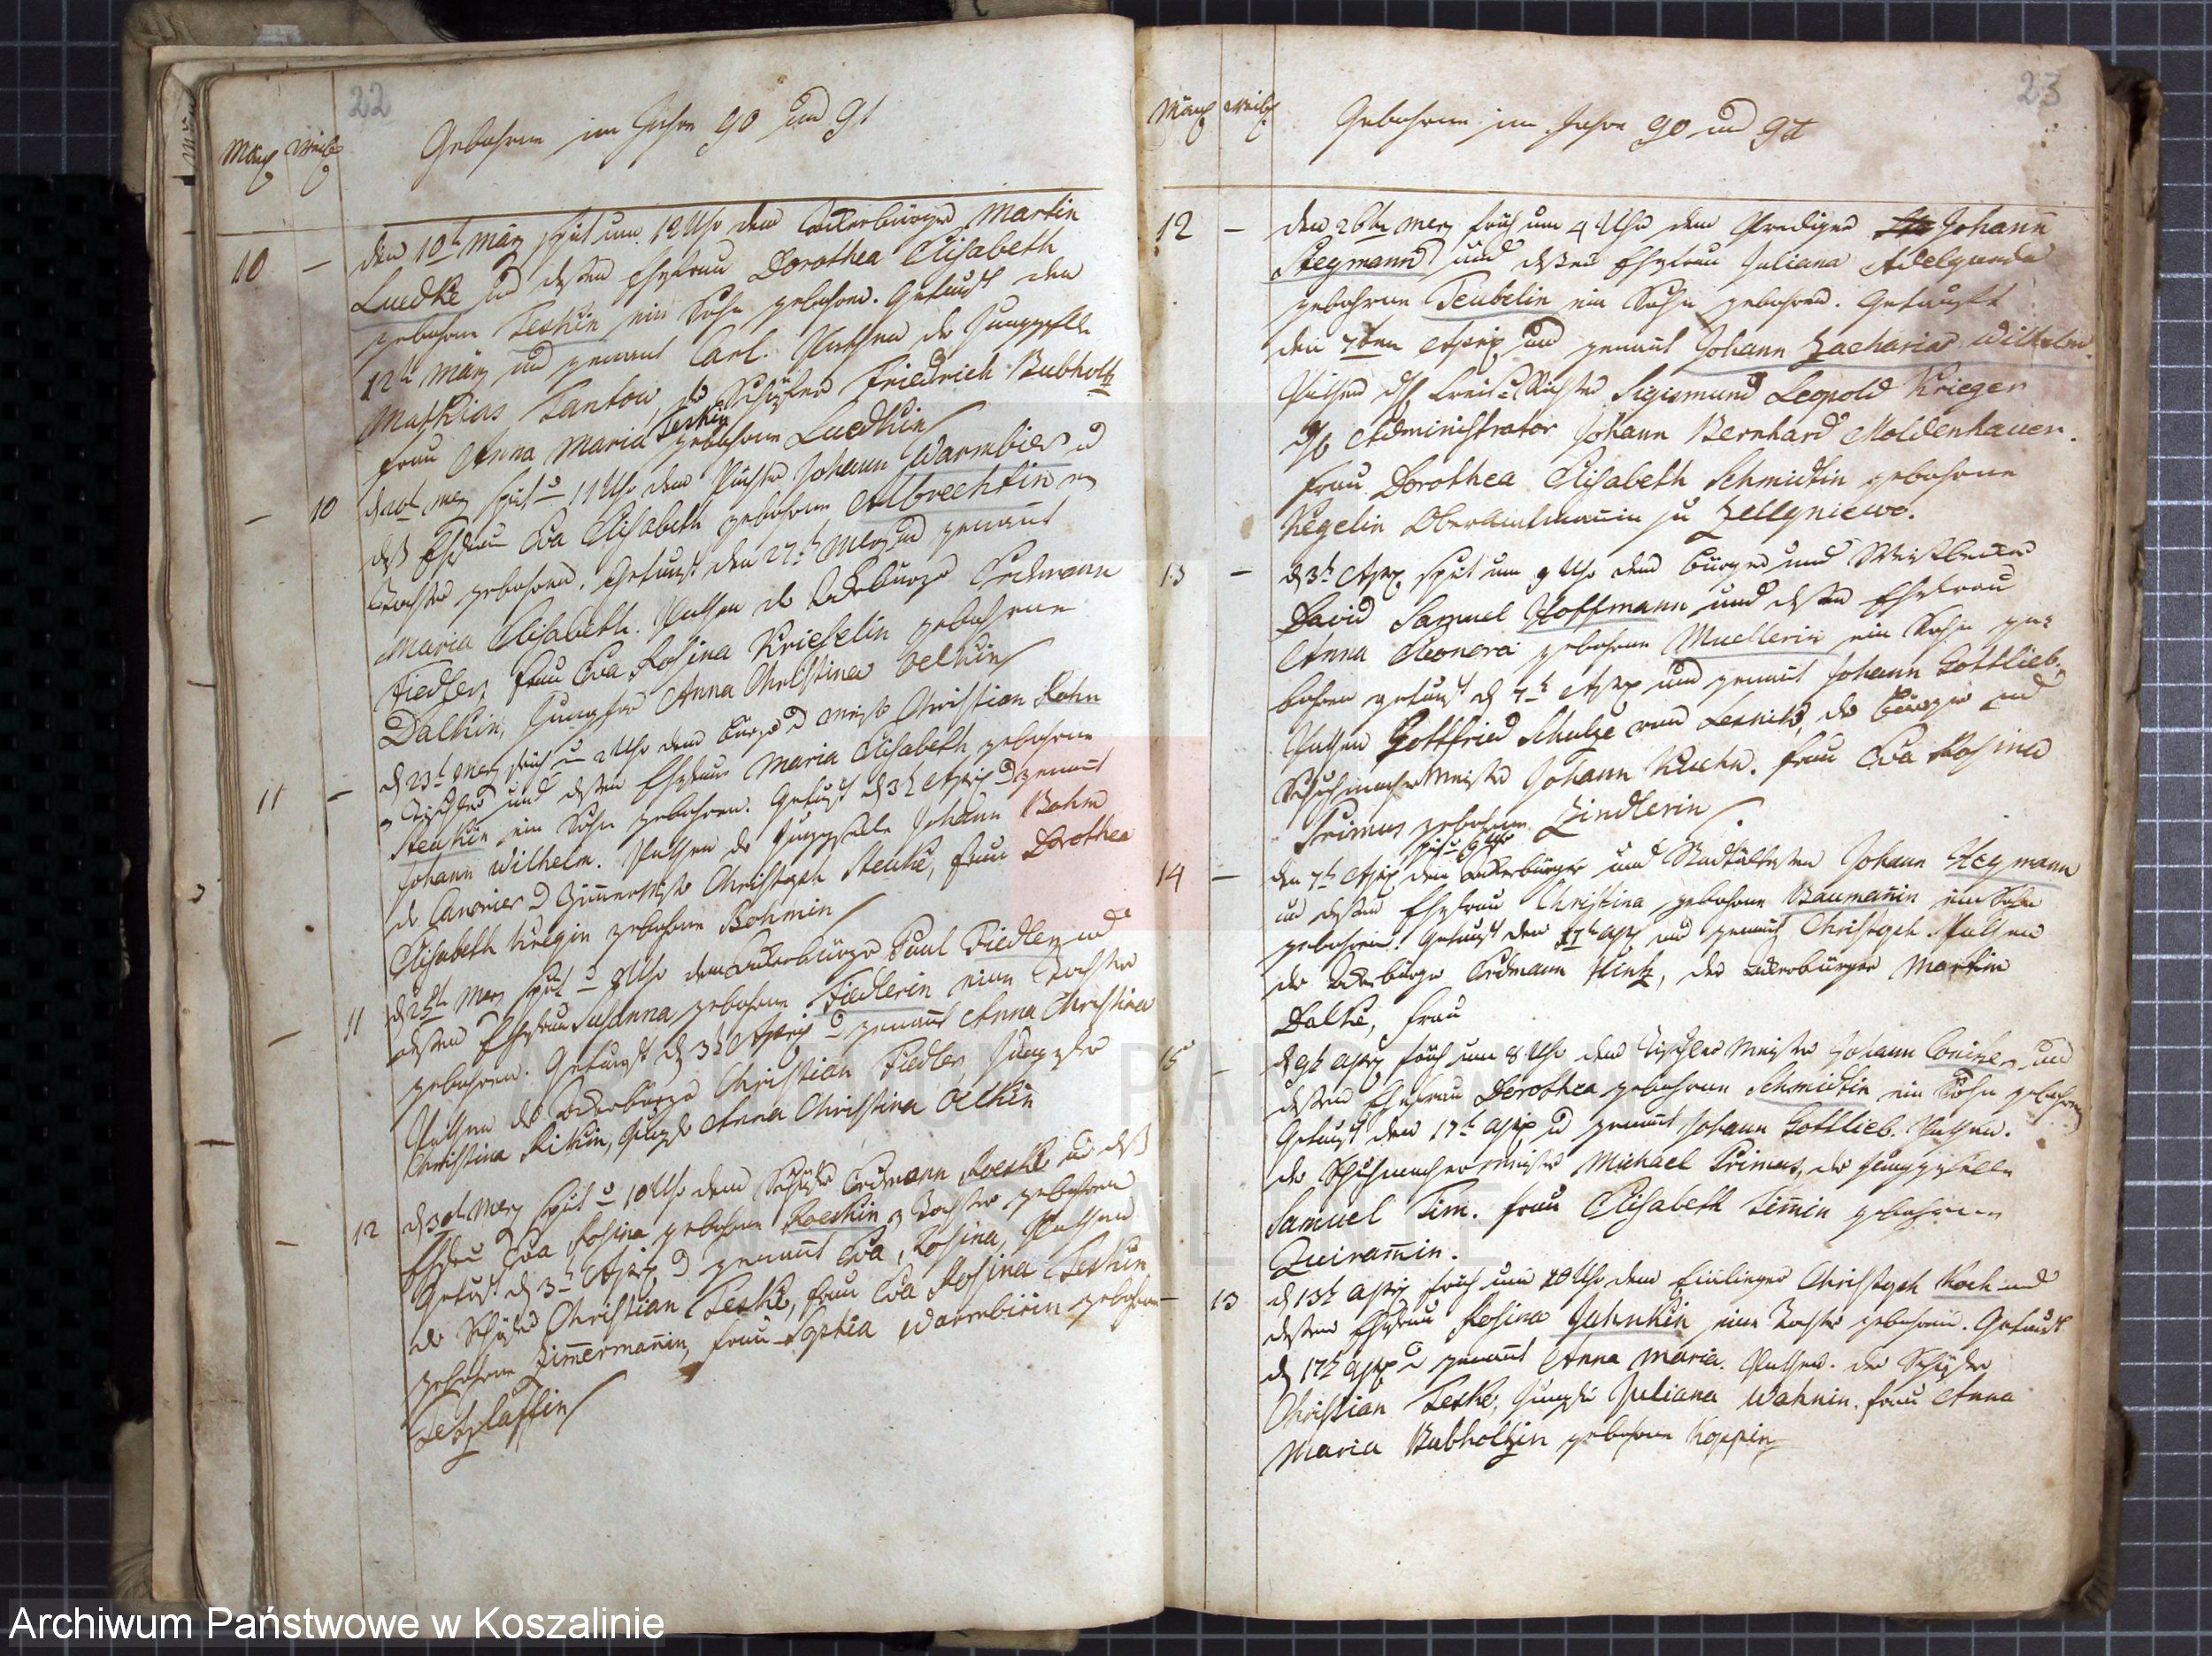 22
Mänl Weibl
Gebohrne im Jahre 90 und 91
10 — den 10t März spät um 12 Uhr dem Ackerbürger Martin
Luedke und dessen Ehefrau Dorothea Elisabeth
gebohrne Teskin ein Sohn gebohren. Getauft den
12t März und genant Carl. Pathen der Junggeselle
Mathias Tantow, der Schäfer Friedrich Bubholtz
Frau Anna Maria Teskin gebohrne Luedkin
— 10 d 20t Merz spät u 11 Uhr dem Johann Warmbier u
deß Ehefrau Eva Elisabeth gebohrne Albrechtin
Tochter gebohren. Getauft den 27t Merz und genant
Maria Elisabeth. Pathen der Ackerbürger Erdmann
Fiedler, Frau Eva Rosina Krieselin gebohrne
Dalkin, Jungfer Anna Christina Oelkin
11 — d 23t Merz früh u 2 Uhr dem Bürger u Christian Rohn
Tischler und dessen Ehefrau Maria Elisabeth gebohrne
Steukin ein Sohn gebohren. Getauft d 3t April u genant
Johann Wilhelm. Pathen der Junggeselle Johann Bohm
der Canonier u Zimmermstr Christoph Steuke, Frau Dorothea
Elisabeth gebohrne Bohmin
— 11 Merz spät u 8 Uhr dem Ackerbürger Paul Fiedler und
dessen Ehefrau Susanna gebohrne Fiedlerin eine Tochter
gebohren. Getauft d 3t April u genant Anna Christina
Pathen der Ackerbürger Christian Fiedler, Jungfer
Christina Rikin, Jungfer Anna Christina Oelkin
— 12 d 30t Merz spät u 10 Uhr dem Schäfer Erdmann Roeske und deß
Ehefrau Eva Rosina gebohrne Roeskin Tochter gebohren
Getauft d 3t April u genant Eva, Rosina, Pathen
der Schäfer Christian Teske, Frau Eva Rosina Teskin
gebohrne Zimmermannin, Frau Sophia Warmbirin gebohrne
Tetzlaffin
23
Mänl Weibl
Gebohrne im Jahre 90 und 91
12 — den 26ten Merz früh um 4 Uhr dem Prediger Johann
Stegmann und dessen Ehefrau Juliana Adelgunda
gebohrne Teubelin ein Sohn gebohren. Getauft
den 7ten April und genant Johann Zacharias Wilhelm.
Pathen Hr Creis Richter Sigismund Leopold Krieger
Hr Administrator Johann Bernhard Moldenhauer.
Frau Dorothea Elisabeth Schmidtin gebohrne
Kegelin Oberamtmannin zu Zellgniewo.
13 — d 3t April spät um 9 Uhr dem Bürger und Weisbecker
David Samuel Hoffmann und dessen Ehefrau
Anna Eleonora gebohrne Muellerin ein Sohn ge=
bohren getauft d 7t April und genant Johann Gottlieb.
Pathen Gottfried Schulze von Lesnitz, der Bürger und
Schuhmacher Meister Johann Kuehn. Frau Eva Rosina
Primus gebohrne Zindlerin
14 — den 7t April spät u 9 Uhr dem Ackerbürger und Stadtältesten Johann Stegmann
und dessen Ehefrau Christina gebohrne Baumanin ein Sohn
gebohren. Getauft den 17t April und genant Christoph. Pathen
der Ackerbürger Erdmann Hintz, der Ackerbürger Martin
Dalke, Frau
15 — d 9t April früh um 8 Uhr dem Tischler Meister Johann und
dessen Ehefrau Dorothea gebohrne Schmidtin ein Sohn gebohren
Getauft den 17t April u genant Johann Gottlieb. Pathen.
der Schuhmacher Meister Michael Primus, der Junggeselle
Samuel Tim. Frau Elisabeth Timin gebohrne
Quiramin.
— 13 d 13t April früh um 10 Uhr dem Einlieger Christoph Koch und
dessen Ehefrau Rosina Jahnkin eine Tochter gebohren. Getauft
d 17t April u genant Anna Maria. Pathen. der Schäfer
Christian Teske, Jungfer Juliana Wahnin. Frau Anna
Maria Bubholtzin gebohrne Koppin
Archiwum Państwowe w Koszalinie